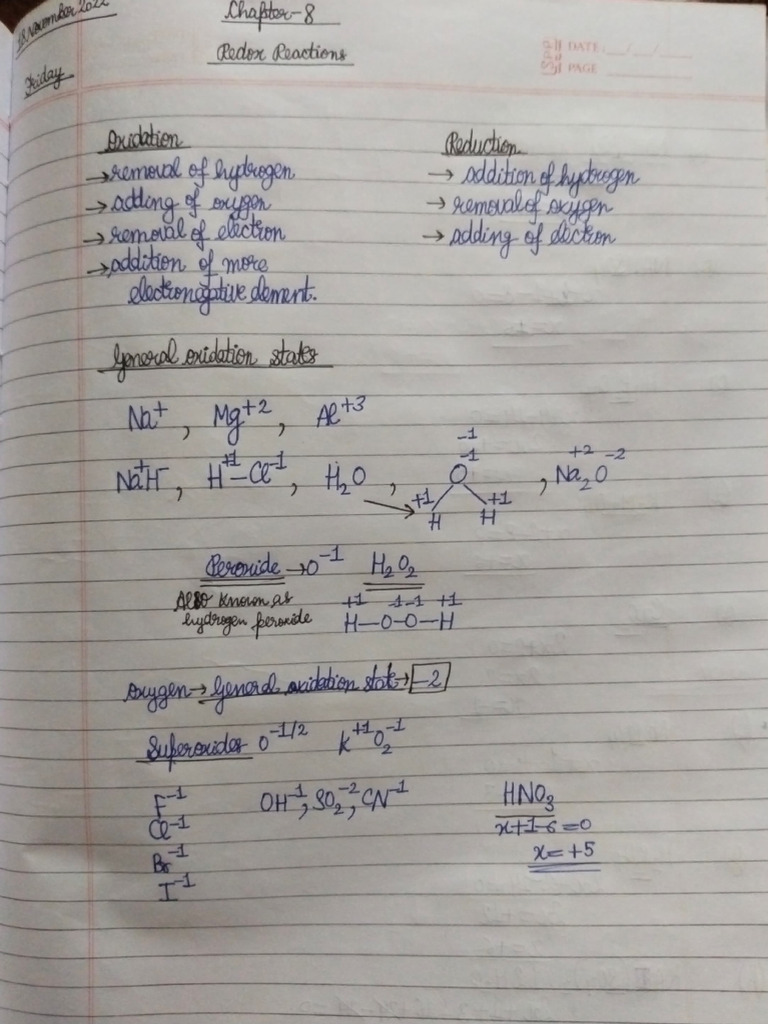 18 November 2022
Chapter-8
Redox Reactions
DATE: __/__/__
PAGE
Friday
Oxidation
→ removal of hydrogen
→ adding of oxygen
→ removal of electron
→ addition of more
electronegative element.
Reduction
→ addition of hydrogen
→ removal of oxygen
→ adding of electron
General oxidation states
Na⁺, Mg⁺², Al⁺³
Na⁺H⁻, H⁺¹–Cl⁻¹, H₂O, → ⁺¹H O⁻¹ ⁻¹ H⁺¹, Na₂⁺²O⁻²
Peroxide → O⁻¹ H₂O₂
Also known as
hydrogen peroxide
+1 -1 -1 +1
H–O–O–H
Oxygen → General oxidation state → -2
Superoxides O⁻¹/² K⁺¹O₂⁻¹
F⁻¹
Cl⁻¹
Br⁻¹
I⁻¹
OH⁻¹, SO₂⁻², CN⁻¹
HNO₃
x+1-6=0
x=+5